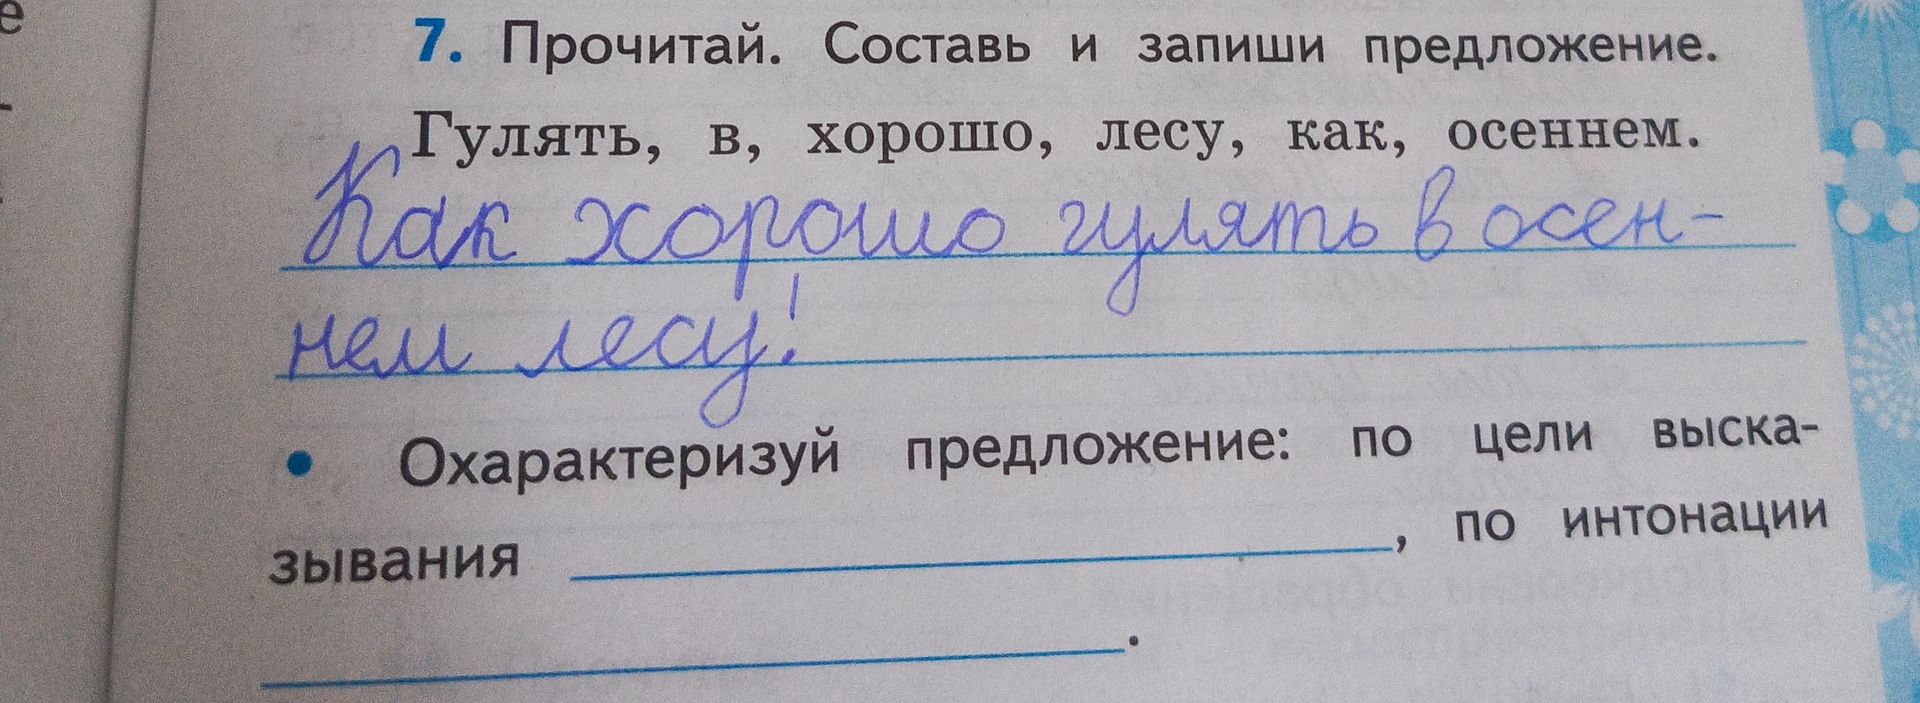 7. Прочитай. Составь и запиши предложение.
Гулять, в, хорошо, лесу, как, осеннем.
Как хорошо гулять в осен-
нем лесу!
• Охарактеризуй предложение: по цели выска-
зывания , по интонации
.